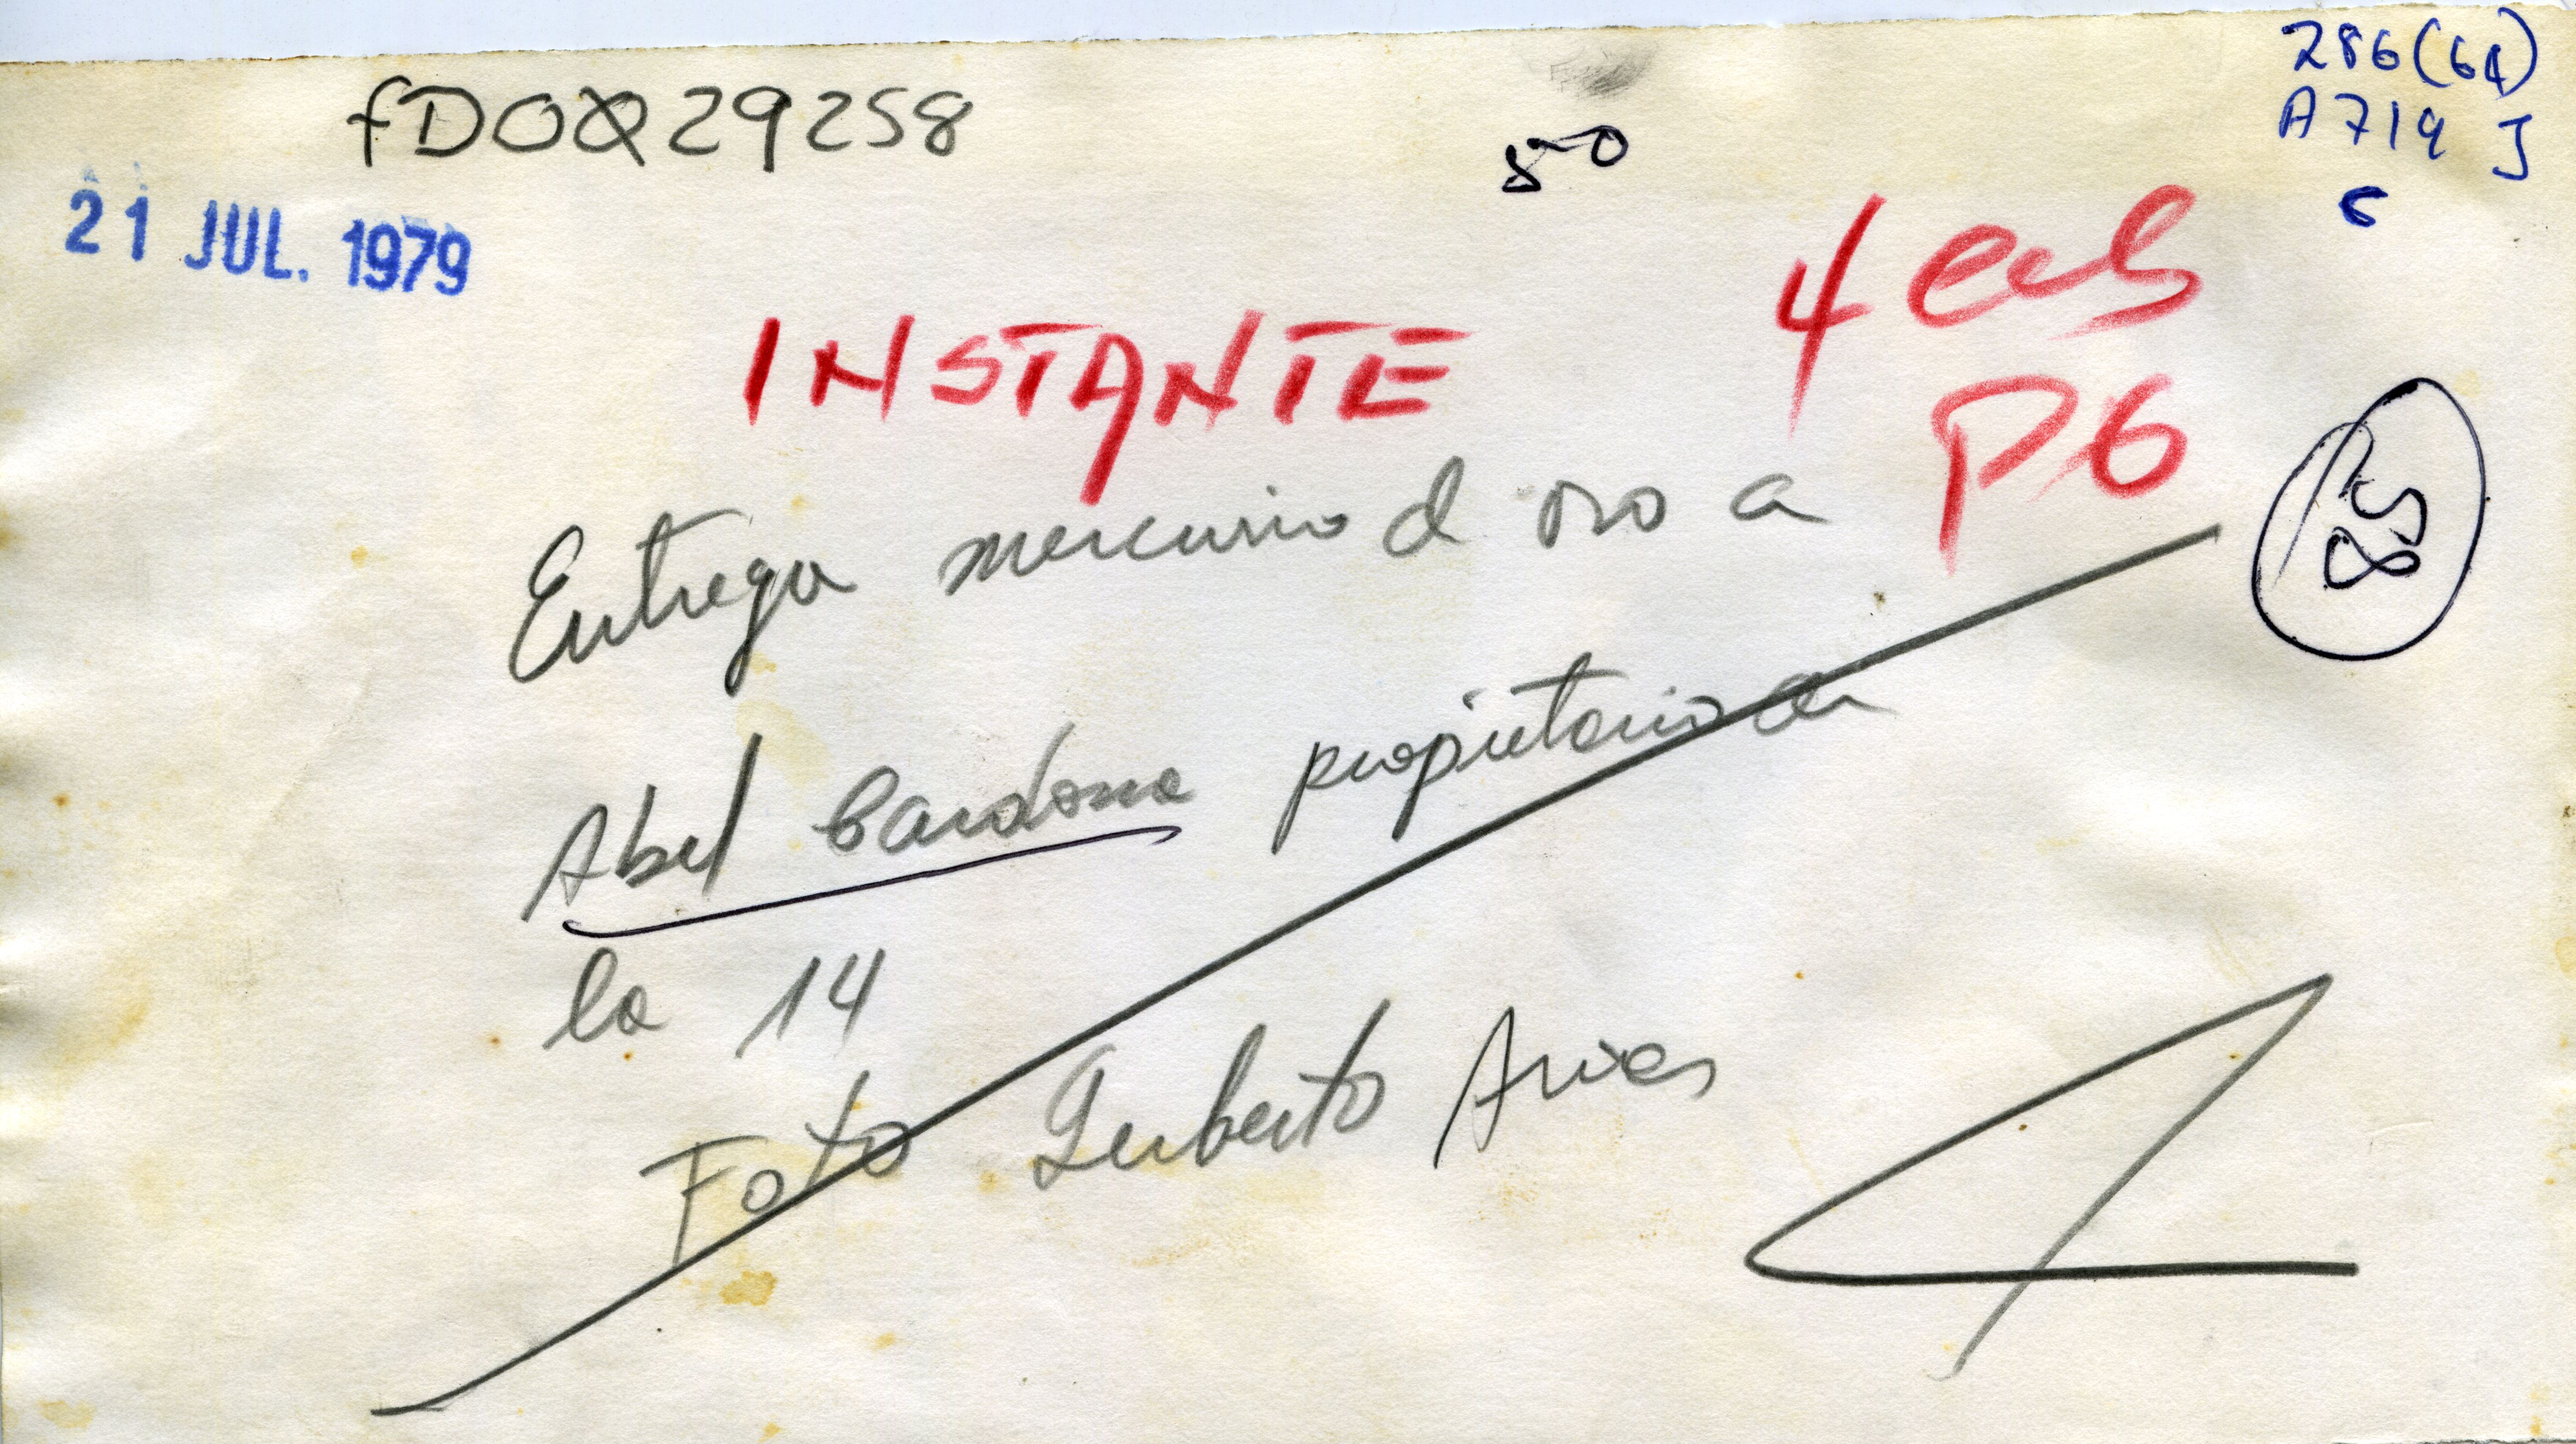 fDOQ29258
286(64)
A719 J
50
21 JUL. 1979
4 cols
INSTANTE
P6
Entrega mercurio d oro a
Abel Cardona propietario de
la 14
Foto Gerberto Arias